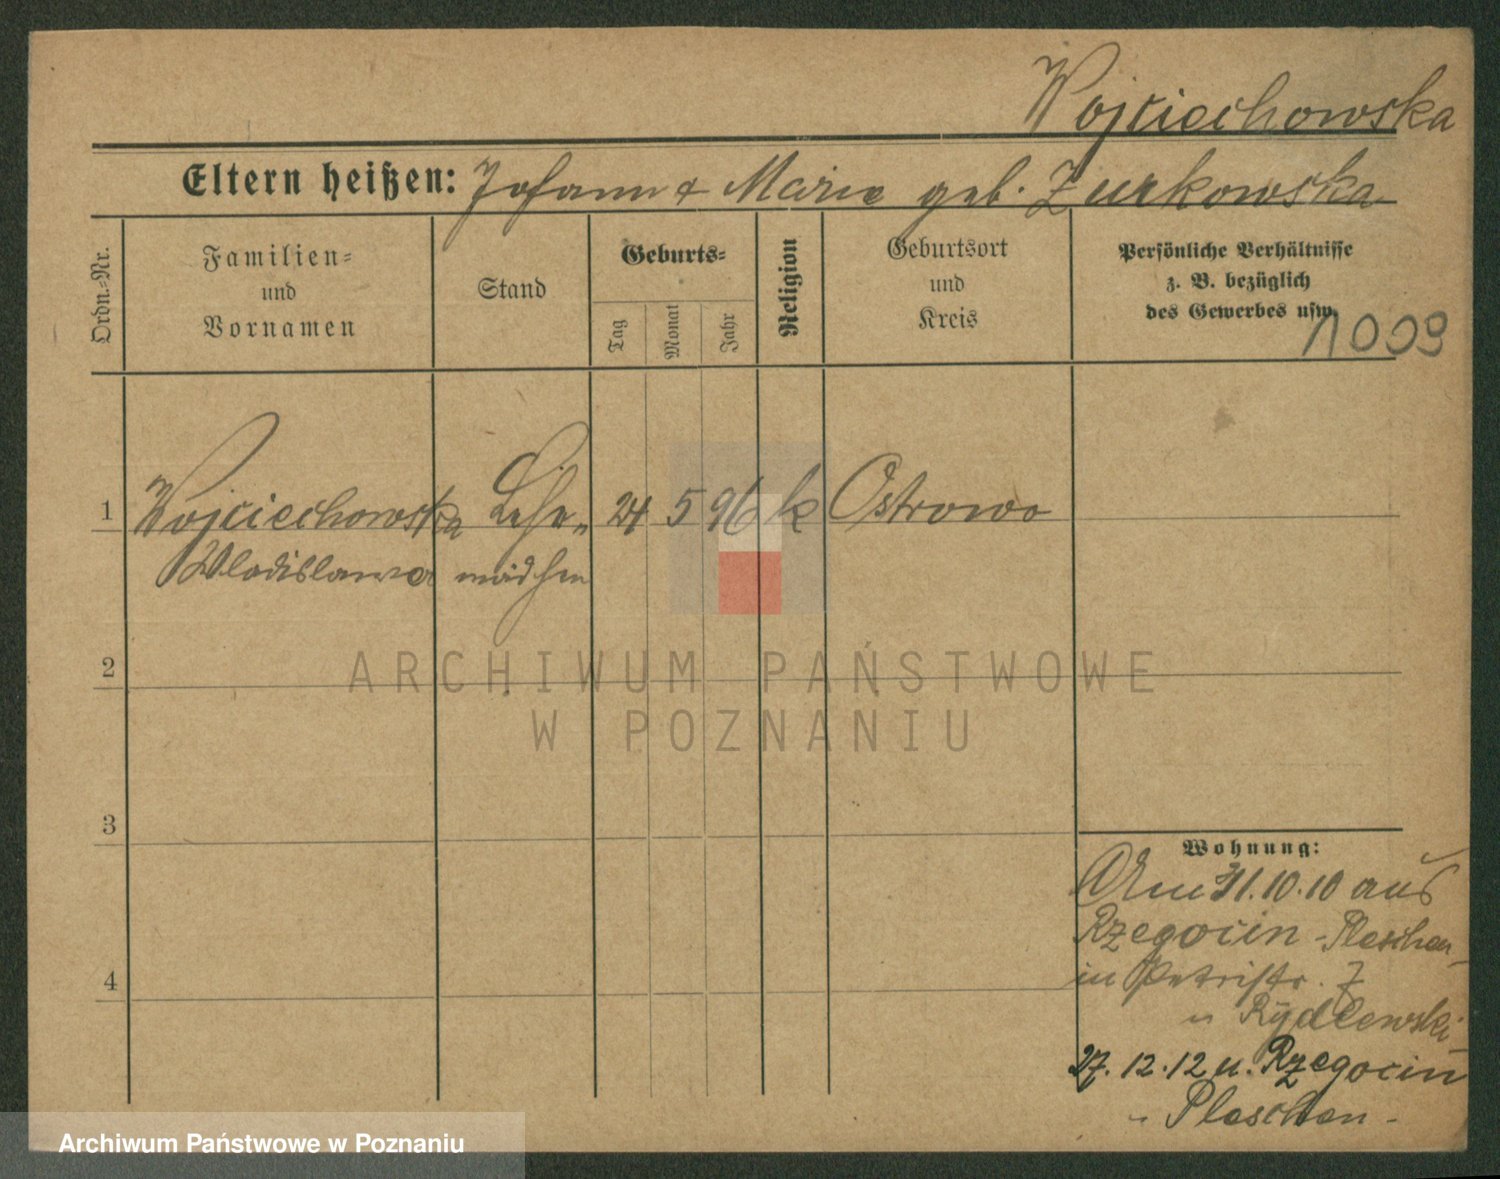 Wojciechowska
Eltern heißen: Johann & Marie geb. Zurkowska
Ordn.-Nr.
Familien-
und
Vornamen
Stand
Geburts-
Tag
Monat
Jahr
Religion
Geburtsort
und
Kreis
Persönliche Verhältnisse
z. B. bezüglich
des Gewerbes usw.
1009
1 Wojciechowska Lehr- 24 5 96 k Ostrowo
Wladislawa mädchen
2
3
4
Wohnung:
31.10.10 aus
Rzegocin - Pleschen
in Petristr. 7
Rydlewski
27.12.12 n. Rzegocin
" Pleschen -
ARCHIWUM PAŃSTWOWE
W POZNANIU
Archiwum Państwowe w Poznaniu